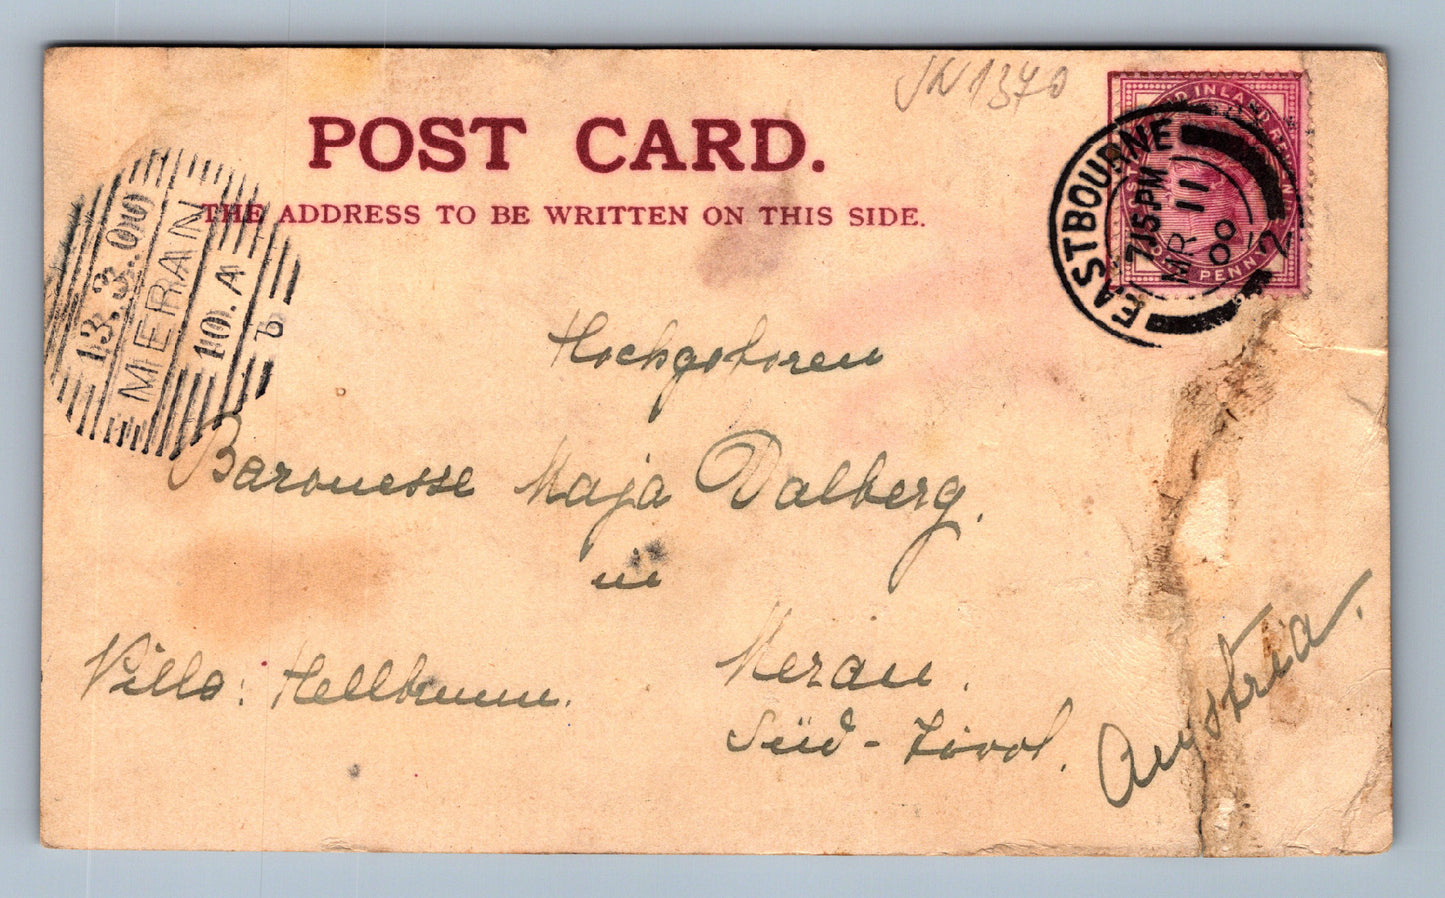 JN1370
POST CARD.
THE ADDRESS TO BE WRITTEN ON THIS SIDE.
EASTBOURNE
7 15 PM
MR 11
00
2
INLAND REV
ONE PENNY
13.3.00
MERAN
10.A
b
Hochgeboren
Baronesse Maja Dalberg.
in
Villa: Hellbrunn.
Meran.
Süd-Tirol.
Austria.